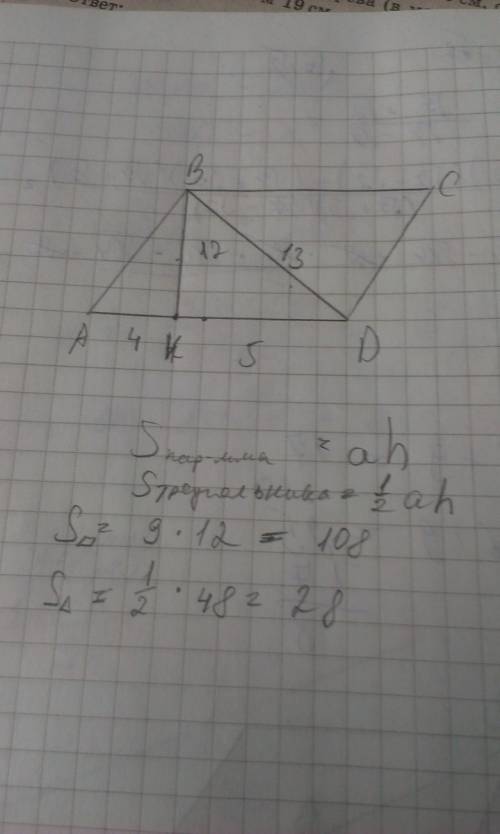 Ответ.
19 см
B
C
12
13
A 4 K 5 D
S пар-мма = ah
S треугольника = 1/2 ah
S▱ = 9 · 12 = 108
S△ = 1/2 · 48 = 28